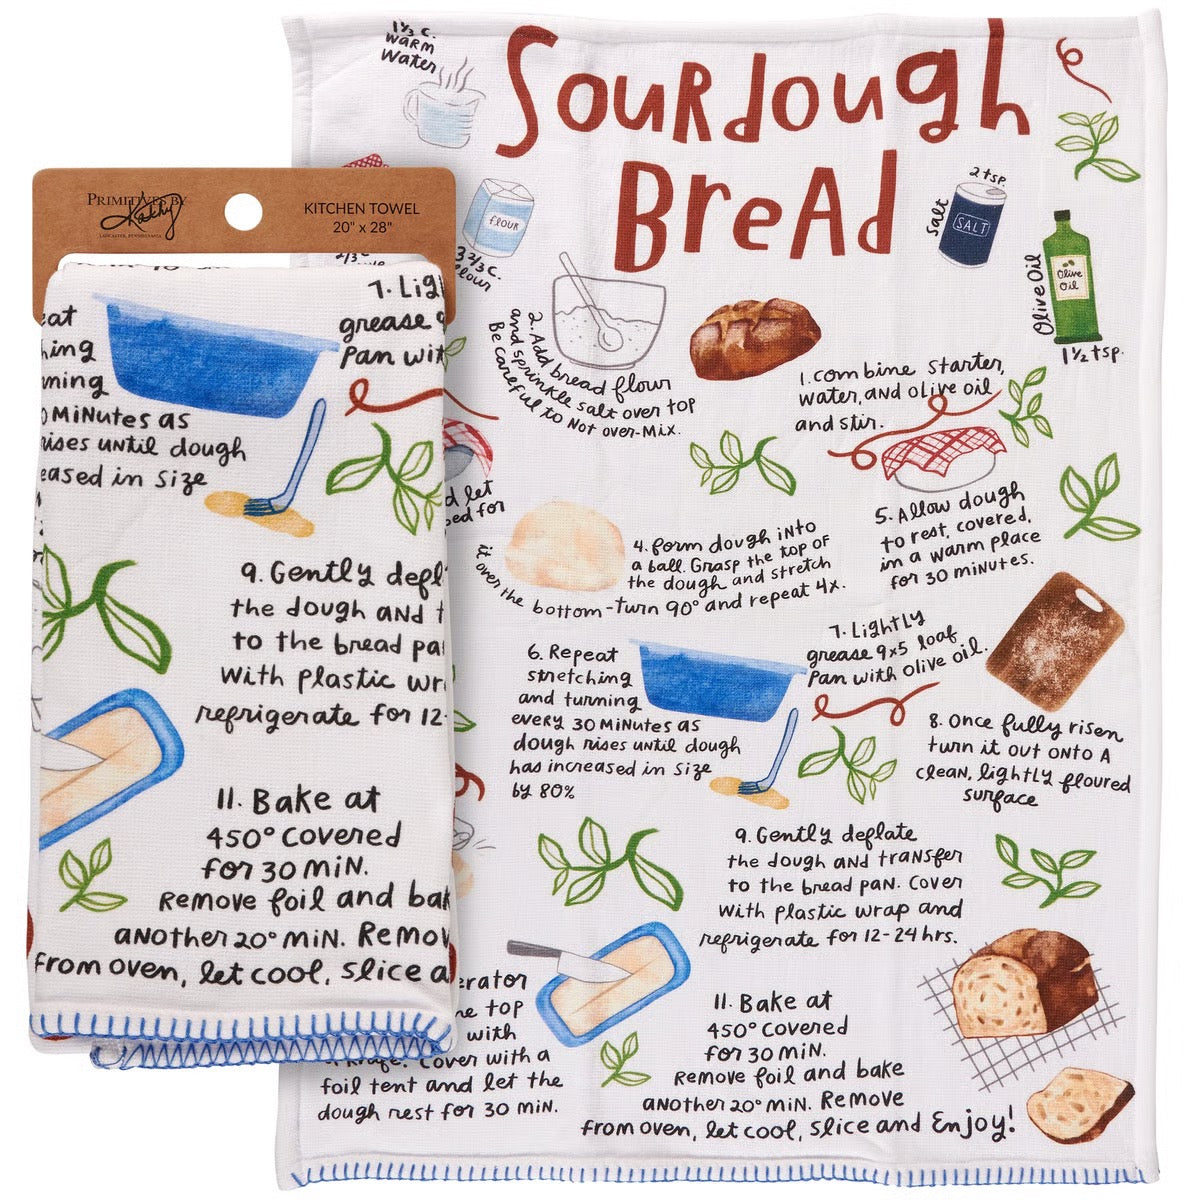 1⅓ c.
warm
Water
Sourdough
Bread
flour
3 2/3 c.
flour
2 tsp.
Salt
SALT
Olive Oil
Olive
Oil
1½ tsp.
PRIMITIVES BY
Kathy
LANCASTER, PENNSYLVANIA
KITCHEN TOWEL
20" x 28"
1. combine starter,
water, and olive oil
and stir.
2. Add bread flour
and sprinkle salt over top
Be careful to Not over-Mix.
d let
ed for
4. form dough into
a ball. Grasp the top of
the dough and stretch
it over the bottom-turn 90° and repeat 4x.
5. Allow dough
to rest, covered,
in a warm place
for 30 minutes.
6. Repeat
stretching
and turning
every 30 minutes as
dough rises until dough
has increased in size
by 80%
7. Lightly
grease 9x5 loaf
pan with olive oil.
8. Once fully risen
turn it out onto a
clean, lightly floured
surface
9. Gently deflate
the dough and transfer
to the bread pan. Cover
with plastic wrap and
refrigerate for 12-24 hrs.
erator
he top
with
a knife. Cover with a
foil tent and let the
dough rest for 30 min.
11. Bake at
450° covered
for 30 min.
Remove foil and bake
another 20° min. Remove
from oven, let cool, slice and Enjoy!
eat
hing
rning
0 minutes as
rises until dough
eased in size
7. Ligh
grease 9
pan wit
9. Gently defl
the dough and t
to the bread pa
with plastic wr
refrigerate for 12-
11. Bake at
450° covered
for 30 min.
Remove foil and bak
another 20° min. Remov
from oven, let cool, slice a